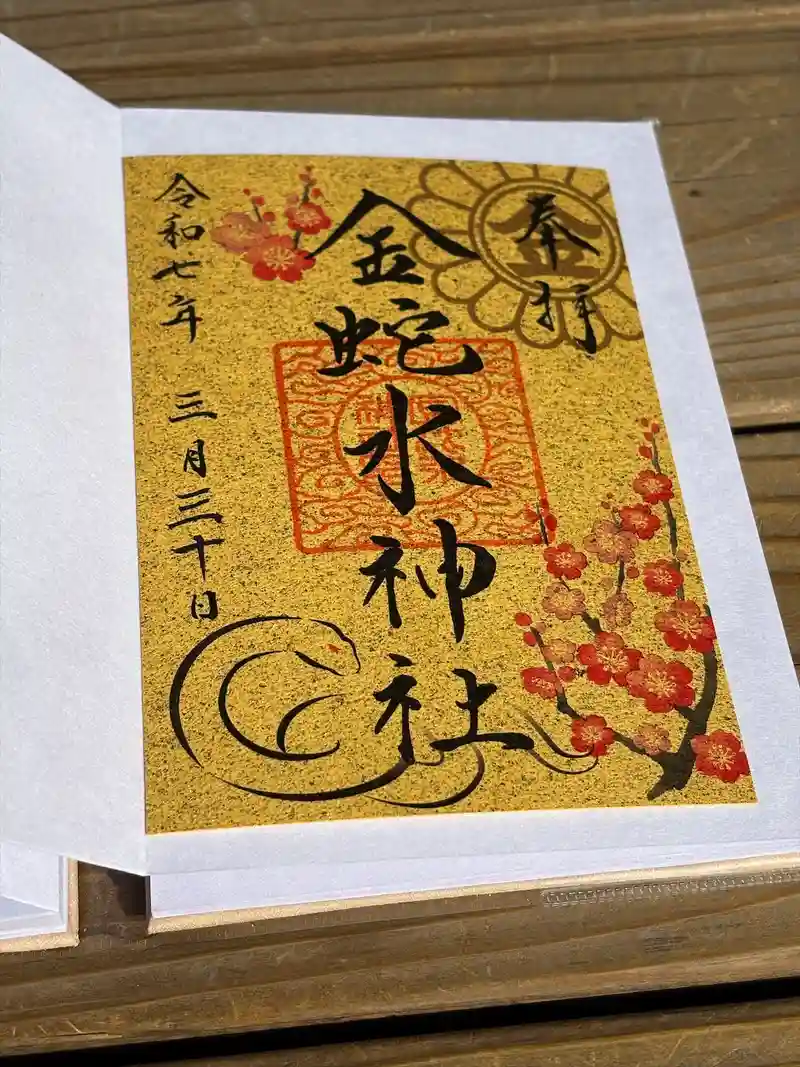 奉拝
金蛇水神社
令和七年 三月三十日